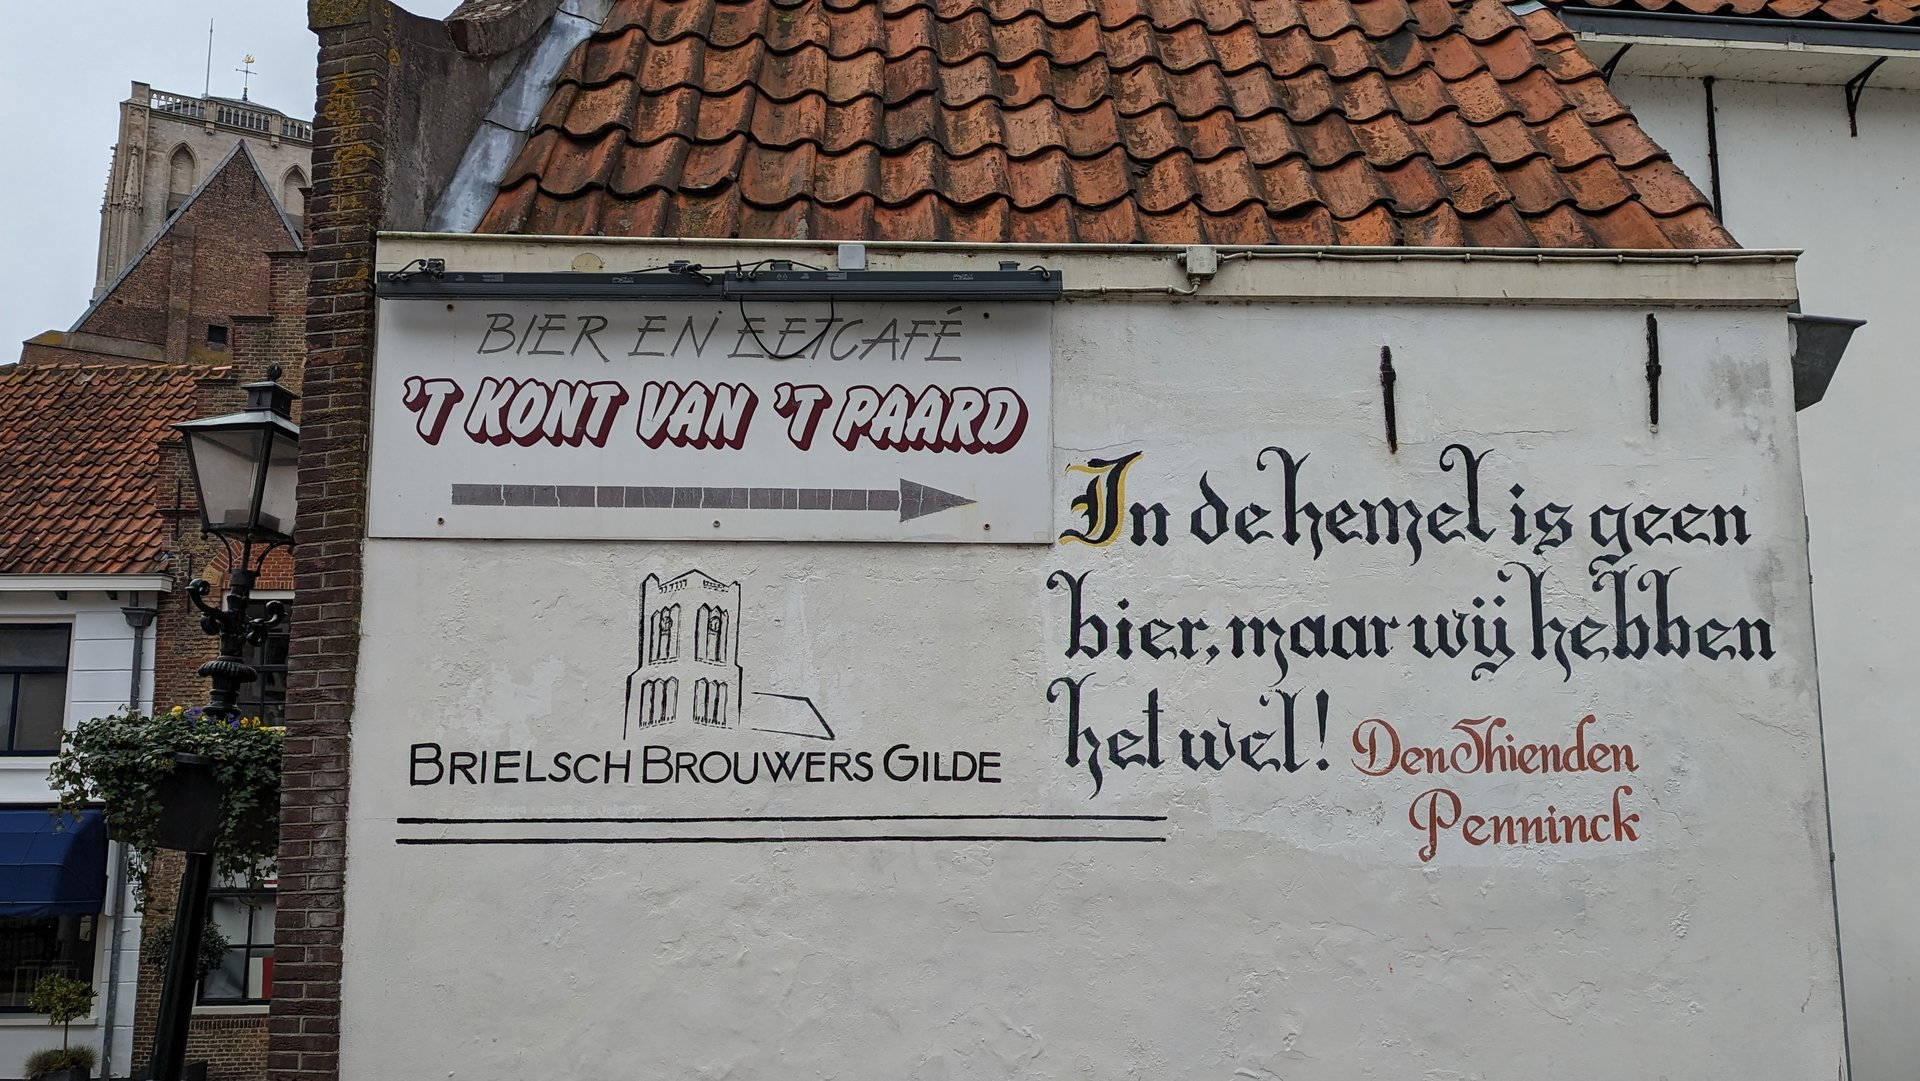 BIER EN EETCAFÉ
'T KONT VAN 'T PAARD
BRIELSCH BROUWERS GILDE
In de hemel is geen
bier, maar wij hebben
het wel!
Den Thienden
Penninck